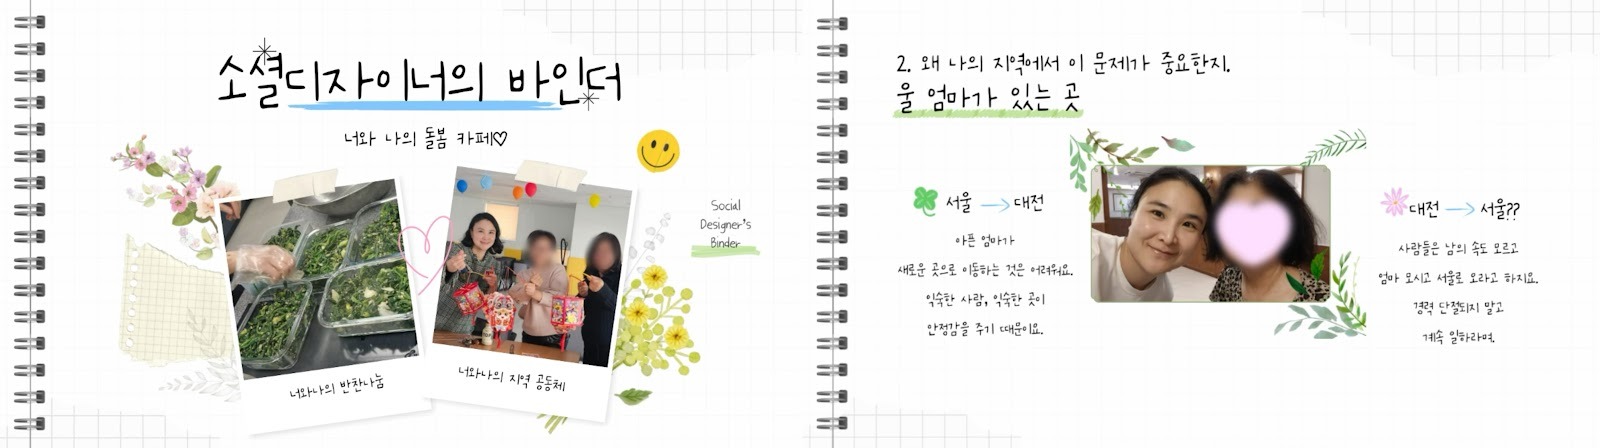 소셜디자이너의 바인더
너와 나의 돌봄 카페♡
Social
Designer's
Binder
너와나의 반찬나눔
너와나의 지역 공동체
2. 왜 나의 지역에서 이 문제가 중요한지.
울 엄마가 있는 곳
서울 → 대전
아픈 엄마가
새로운 곳으로 이동하는 것은 어려워요.
익숙한 사람, 익숙한 곳이
안정감을 주기 때문이요.
대전 → 서울??
사람들은 남의 속도 모르고
엄마 모시고 서울로 오라고 하지요.
경력 단절되지 말고
계속 일하라며.